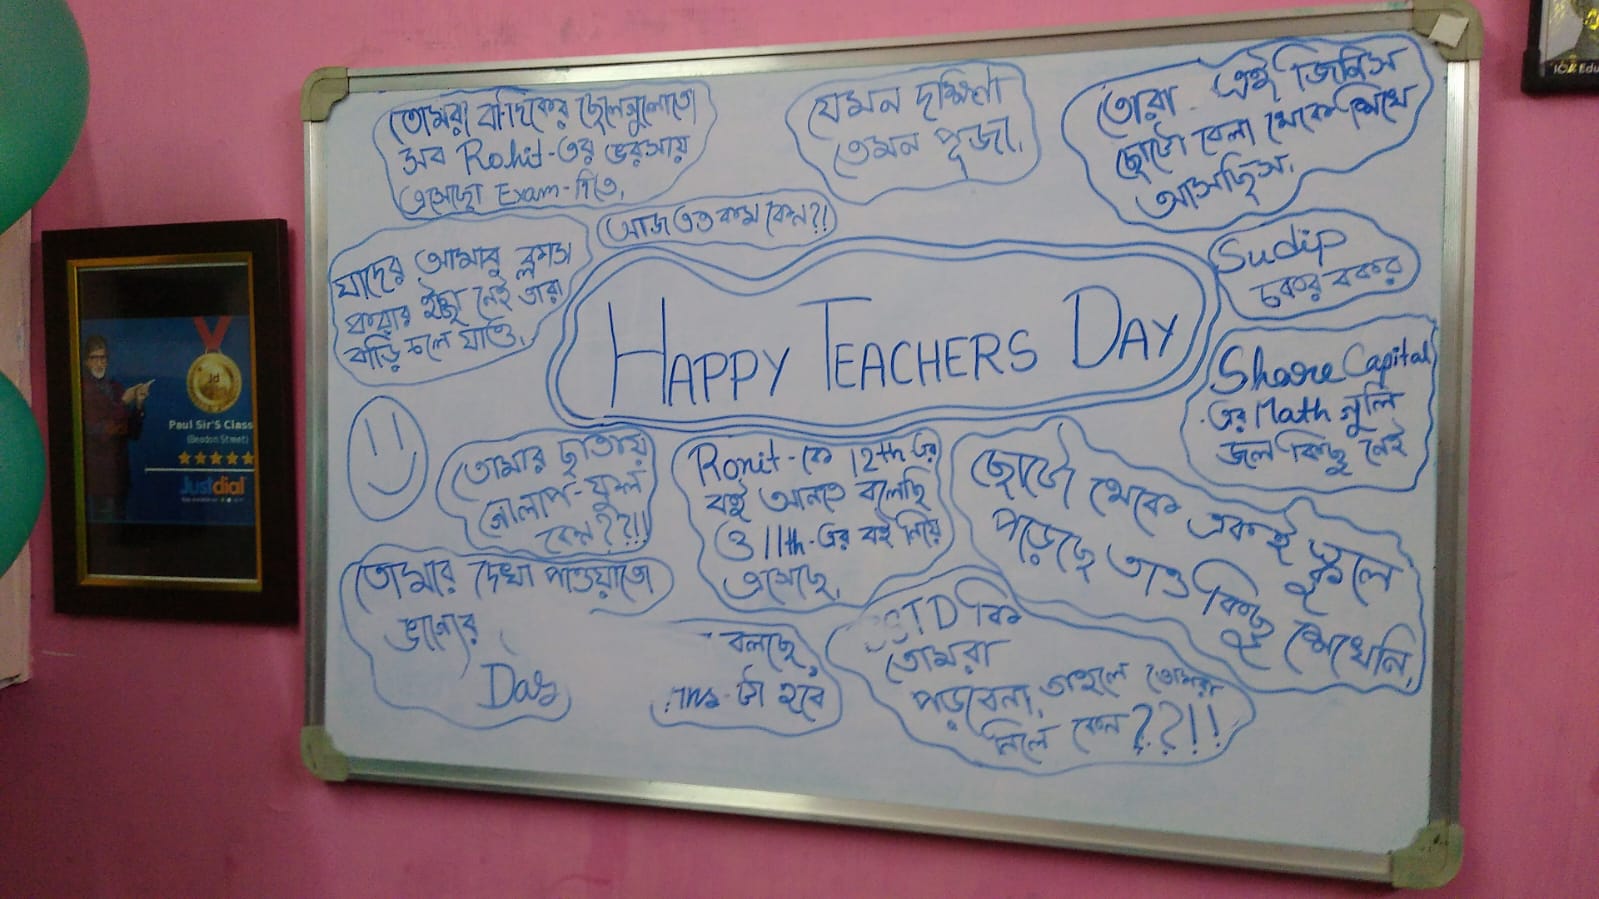 তোমরা বাঁদিকের ছেলেগুলোতো
সব Rohit-এর ভরসায়
এসেছো Exam-দিতে,
যেমন দক্ষিণা
তেমন পূজা,
তোরা এই জিনিস
ছোটো বেলা থেকে শিখে
আসছিস,
আজ এত কম কেন?!
যাদের আমার ক্লাস
করার ইচ্ছা নেই তারা
বাড়ি চলে যাও,
HAPPY TEACHERS DAY
Sudip
চকর বকর
Share Capital
এর Math গুলি
জলে কিছু নেই
তোমার ছাতায়
গোলাপ-ফুল
কেন??!!
Ronit-কে 12th এর
বই আনতে বলেছি
ও 11th-এর বই নিয়ে
এসেছে,
ছোটো থেকে একই স্কুলে
পড়েছে তাও কিছু
ই শেখেনি,
তোমার দেখা পাওয়াতো
ভাগ্যের
Day
বলছে,
Ans-টা হবে
STD কি
তোমরা
পড়বেনা, তাহলে তোমরা
নিলে কেন??!!
Jd
Paul Sir'S Class
(Beadon Street)
Justdial
ICA Edu